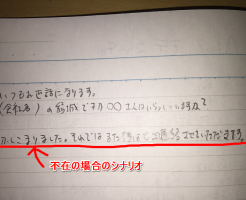 いつもお世話になります。
(会社名)の船城ですが〇〇さんはいらっしゃいますか?
かしこまりました。それではまた後ほどご連絡させていただきます。
不在の場合のシナリオ